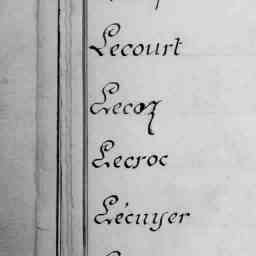 Lecourt
Lecoz
Lecroc
Lécuyer